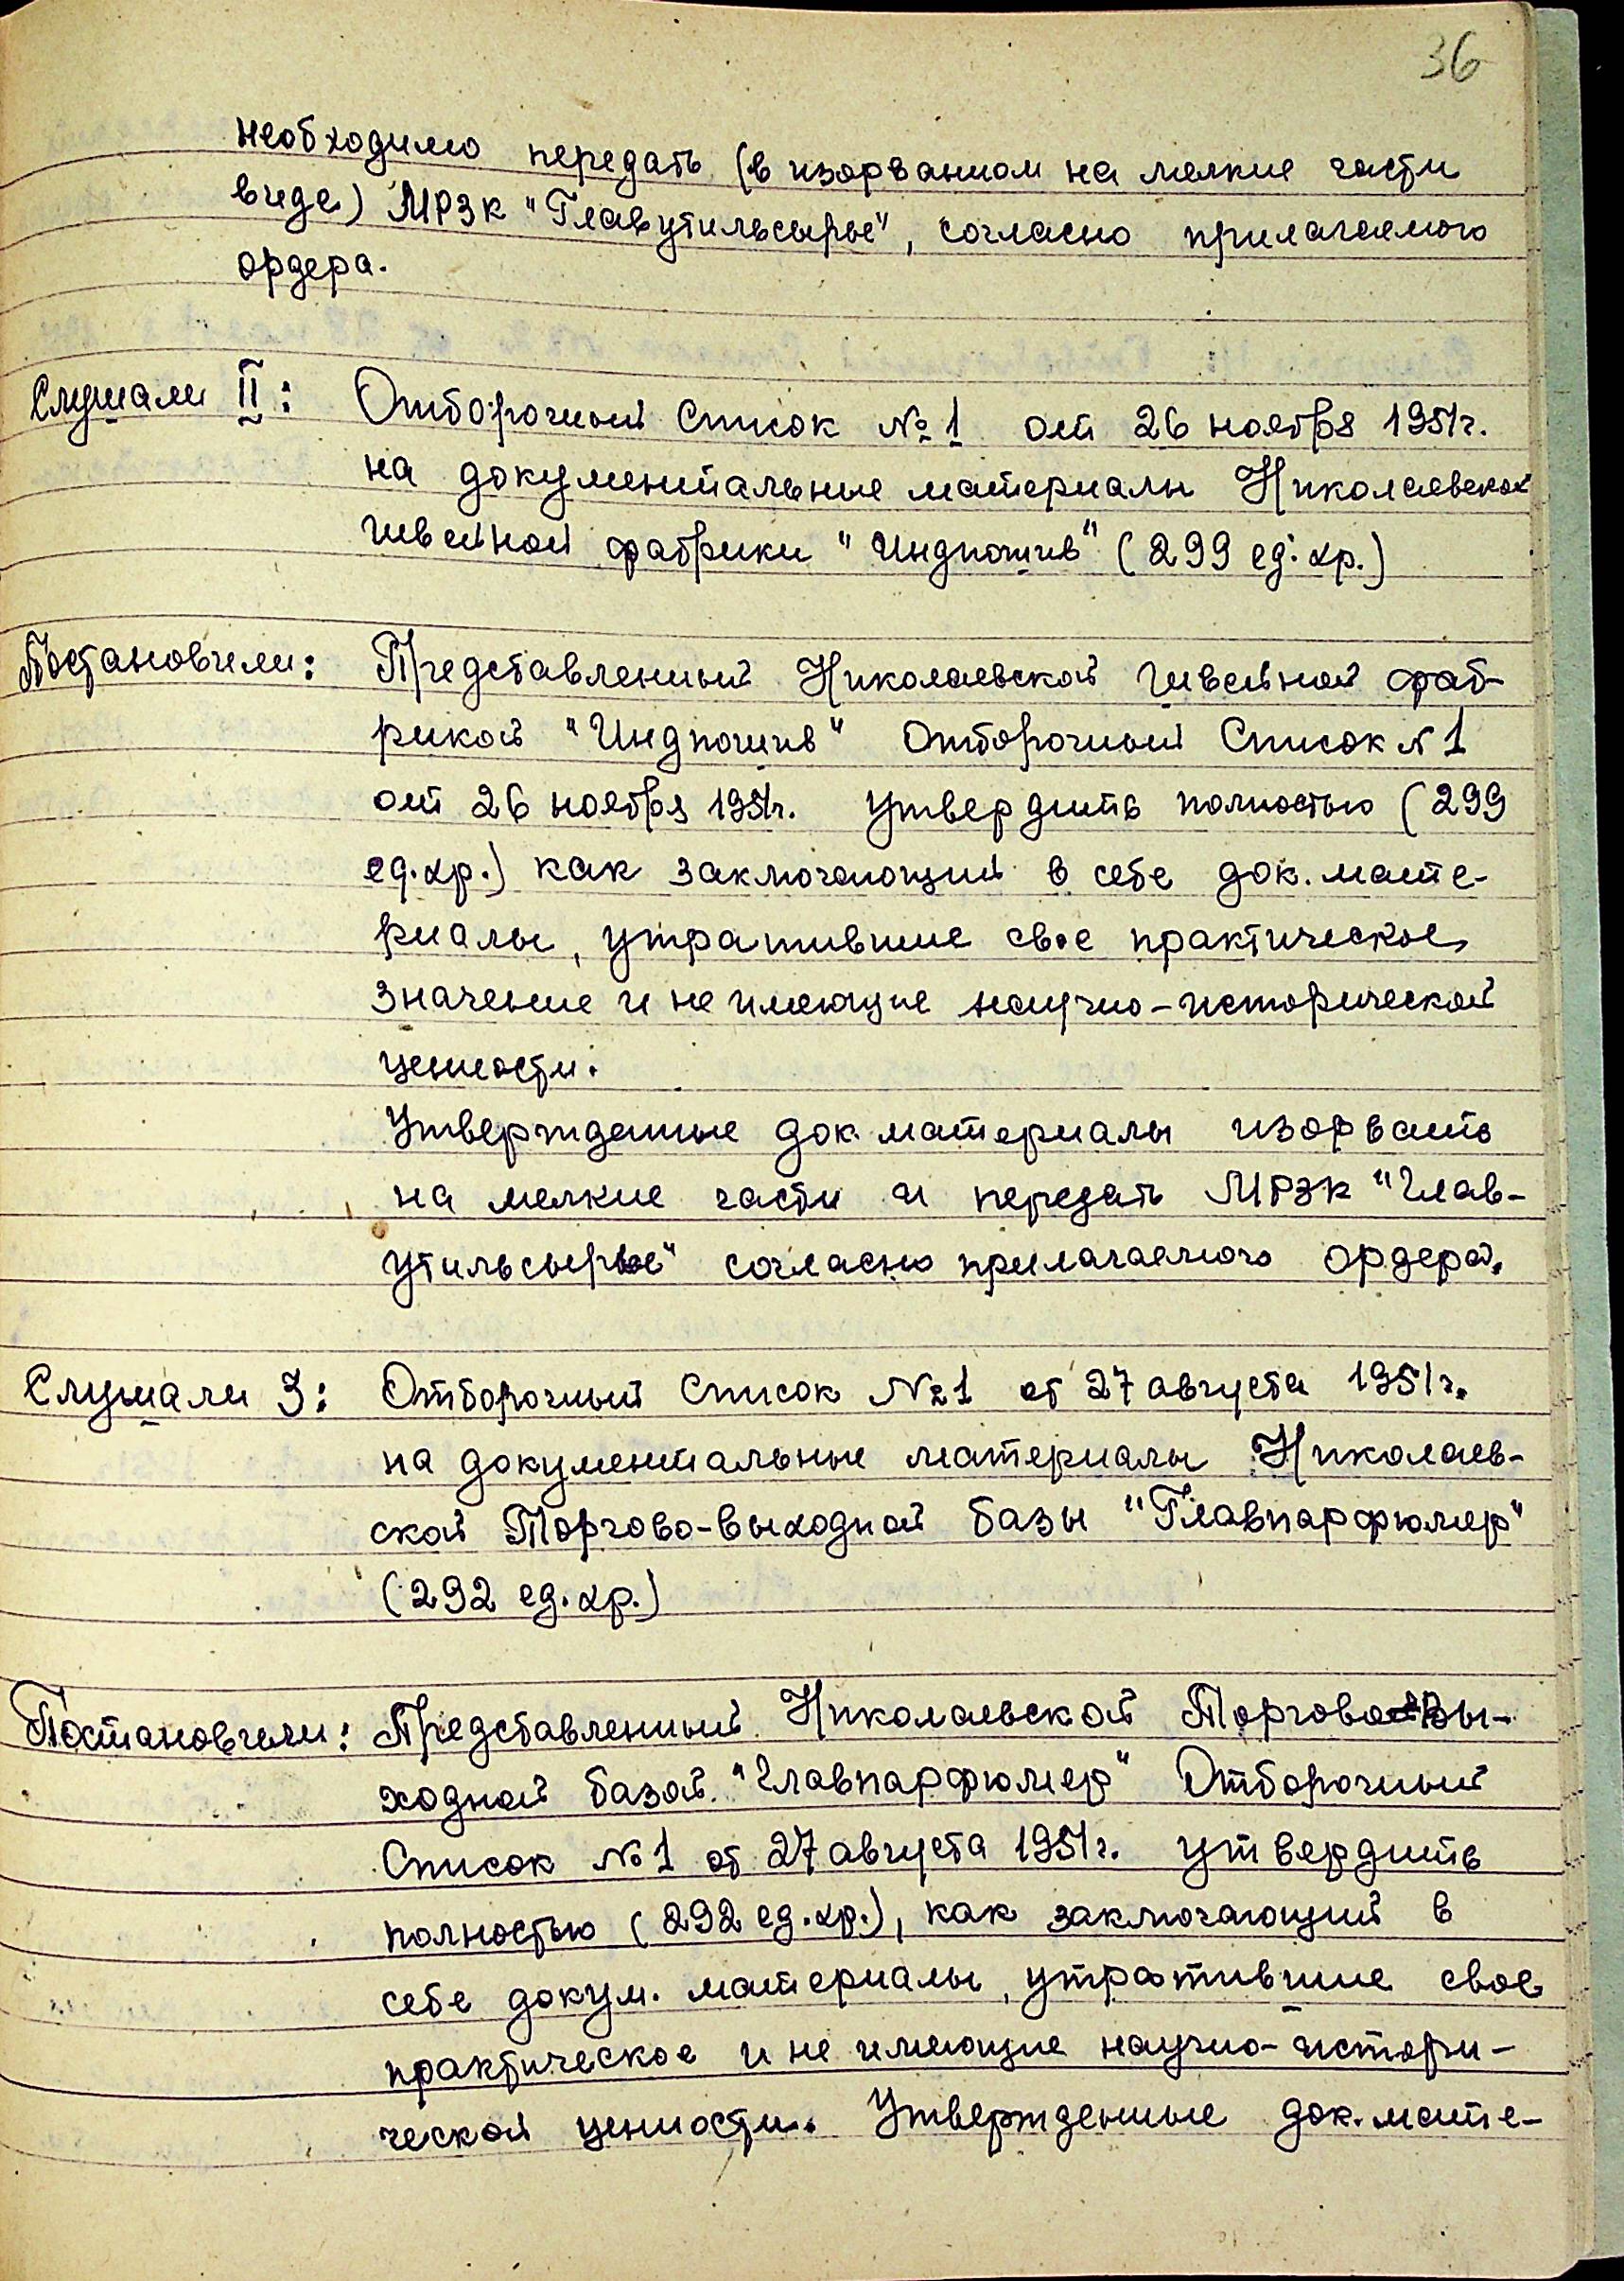 36
необходимо передать (в изорванном на мелкие части
виде) МРЗК "Главутильсырье", согласно прилагаемого
ордера.
Слушали II: Отборочный Список № 1 от 26 ноября 1951г.
на документальные материалы Николаевской
швейной фабрики "Индпошив" (299 ед. хр.)
Постановили: Представленный Николаевской швейной фаб-
рикой "Индпошив" Отборочный Список N 1
от 26 ноября 1951г. утвердить полностью (299
ед.хр.) как заключающий в себе док. мате-
риалы, утратившие свое практическое,
значение и не имеющие научно-исторической
ценности.
Утвержденные док. материалы изорвать
на мелкие части и передать МРЗК "Глав-
утильсырье" согласно прилагаемого ордера.
Слушали 3: Отборочный Список №1 от 27 августа 1951г.
на документальные материалы Николаев-
ской Торгово-выходной базы "Главпарфюмер"
(292 ед.хр.)
Постановили: Представленный Николаевской Торгово-вы-
ходной базой "Главпарфюмер" Отборочный
Список №1 от 27 августа 1951г. утвердить
полностью (292 ед.хр.), как заключающий в
себе докум. материалы, утратившие свое
практическое и не имеющие научно-истори-
ческой ценности. Утвержденные док. мате-